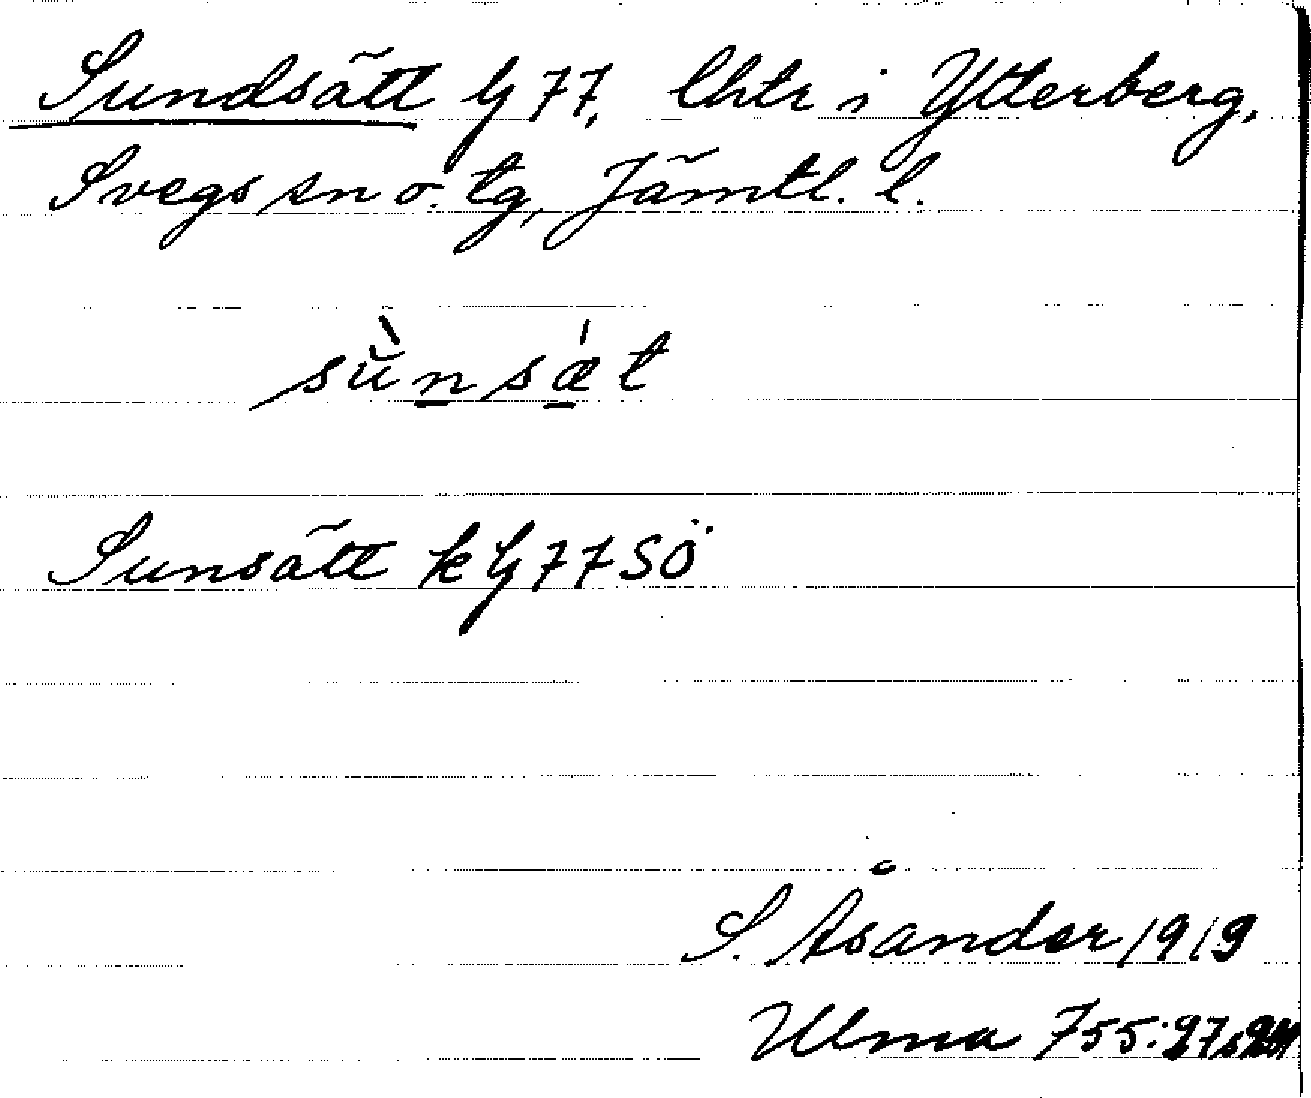 Sundsätt G 77, lhtr i Ytterberg,
Svegs sn o. tg, Jämtl. l.
sùnsæ̍t
Sunsätt k G 77 SÖ
S. Åsander 1919
Ulma 755:27